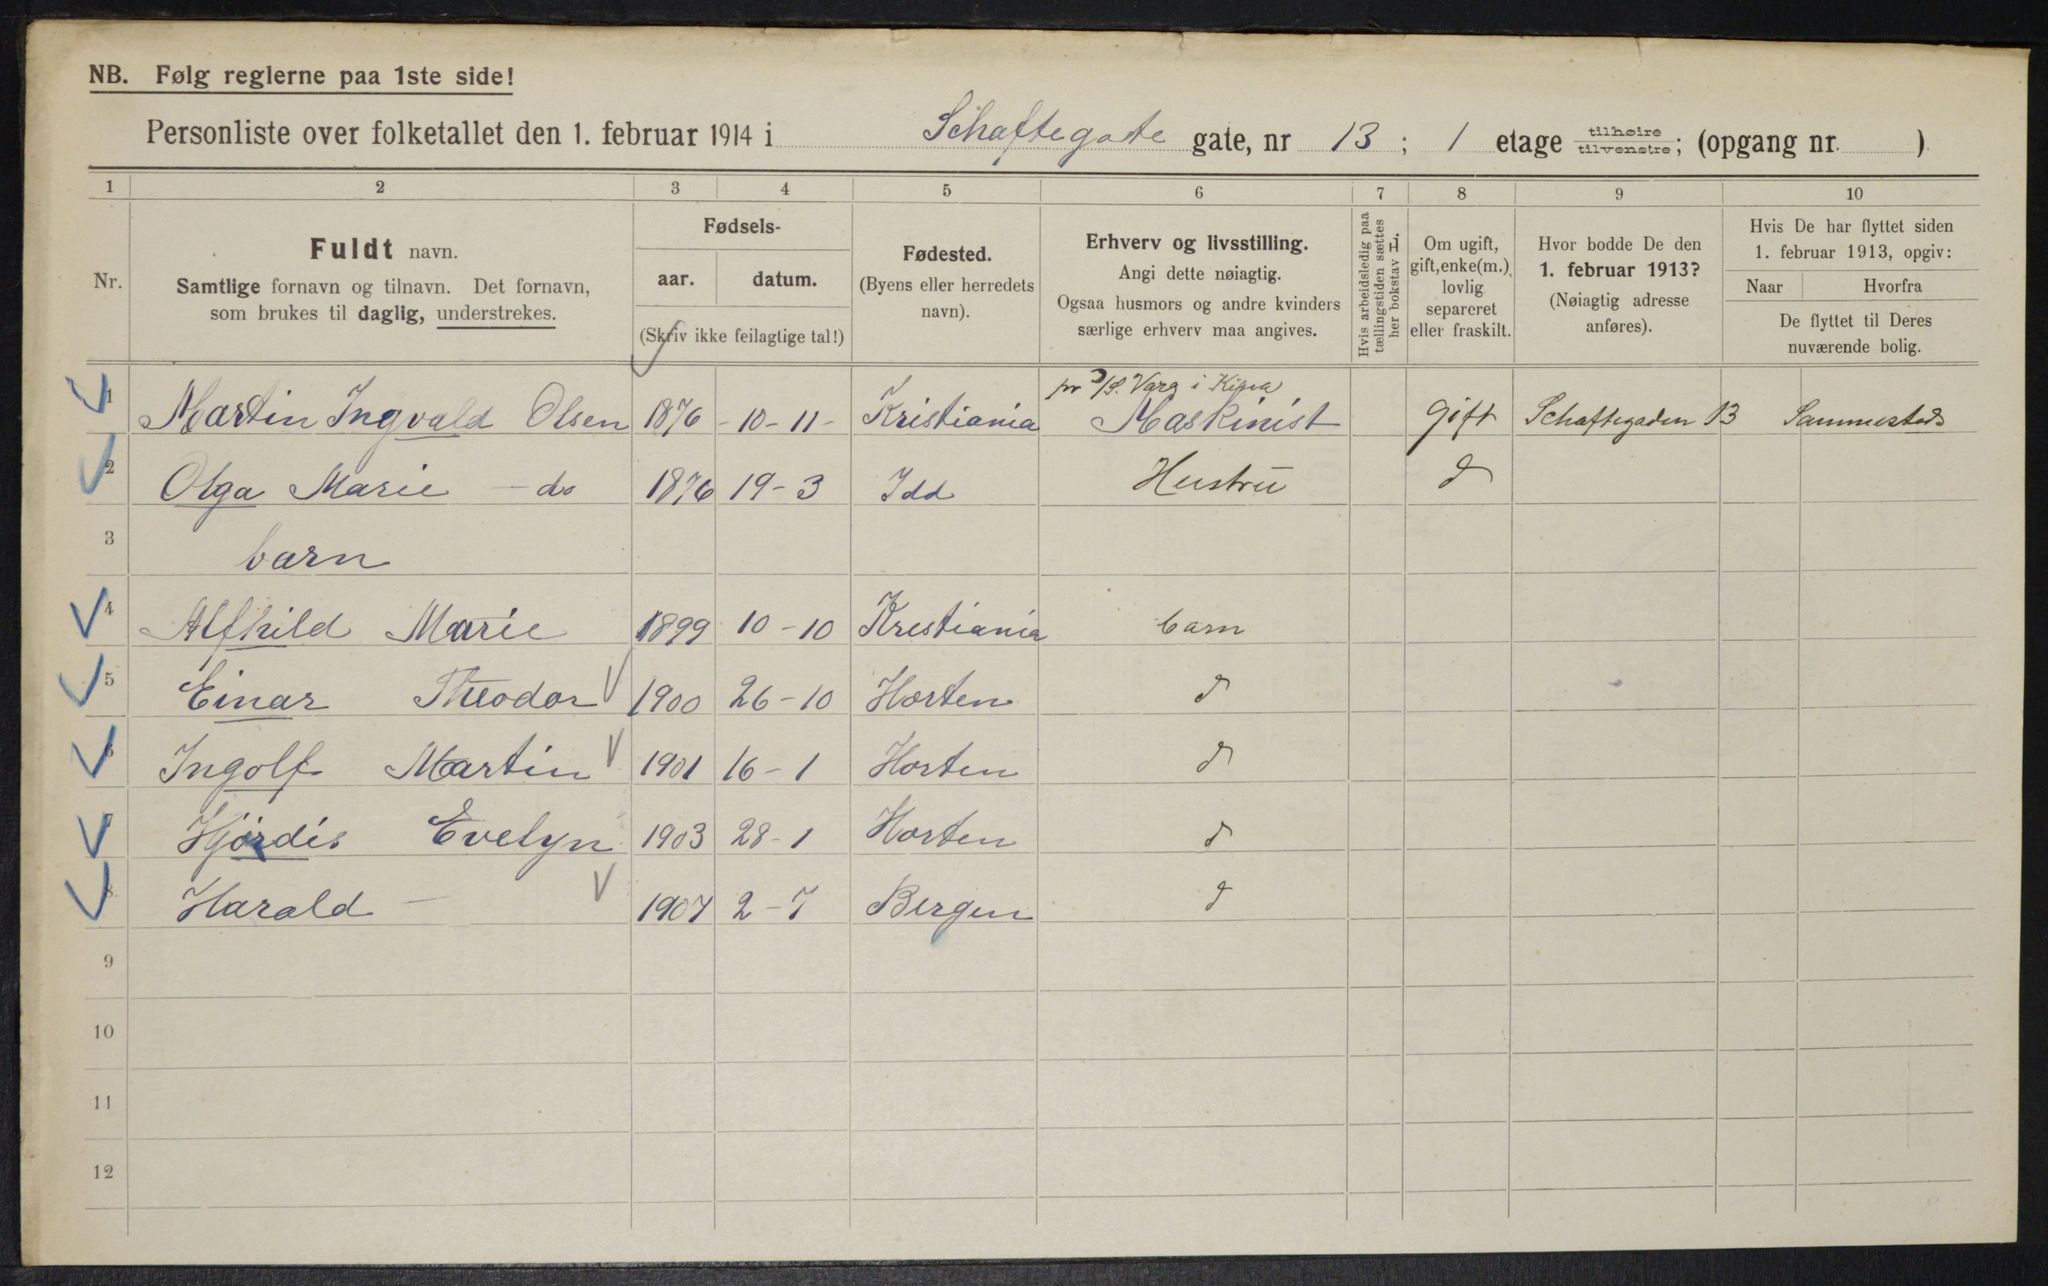 NB. Følg reglerne paa 1ste side!
Personliste over folketallet den 1. februar 1914 i Schaftegate gate, nr 13 ; 1 etage tilhøire tilvenstre; (opgang nr. )
1 2 3 4 5 6 7 8 9 10
Nr.
Fuldt navn.
Samtlige fornavn og tilnavn. Det fornavn,
som brukes til daglig, understrekes.
Fødsels-
aar. datum.
(Skriv ikke feilagtige tal!)
Fødested.
(Byens eller herredets
navn).
Erhverv og livsstilling.
Angi dette nøiagtig.
Ogsaa husmors og andre kvinders
særlige erhverv maa angives.
Hvis arbeidsledig paa
tællingstiden sættes
her bokstav L.
Om ugift,
gift, enke(m.),
lovlig
separeret
eller fraskilt.
Hvor bodde De den
1. februar 1913?
(Nøiagtig adresse
anføres).
Hvis De har flyttet siden
1. februar 1913, opgiv:
Naar Hvorfra
De flyttet til Deres
nuværende bolig.
pr D/S. Varg i Kina
1 Martin Ingvald Olsen 1876 - 10 - 11 - Kristiania Maskinist gift Schaftegaden 13 Sammesteds
2 Olga Marie - do 1876 19 - 3 Idd Hustru d
3 barn
4 Alfhild Marie 1899 10 - 10 Kristiania barn
5 Einar Theodor 1900 26 - 10 Horten d
6 Ingolf Martin 1901 16 - 1 Horten d
7 Hjördis Evelyn 1903 28 - 1 Horten d
8 Harald - 1907 2 - 7 Bergen d
9
10
11
12